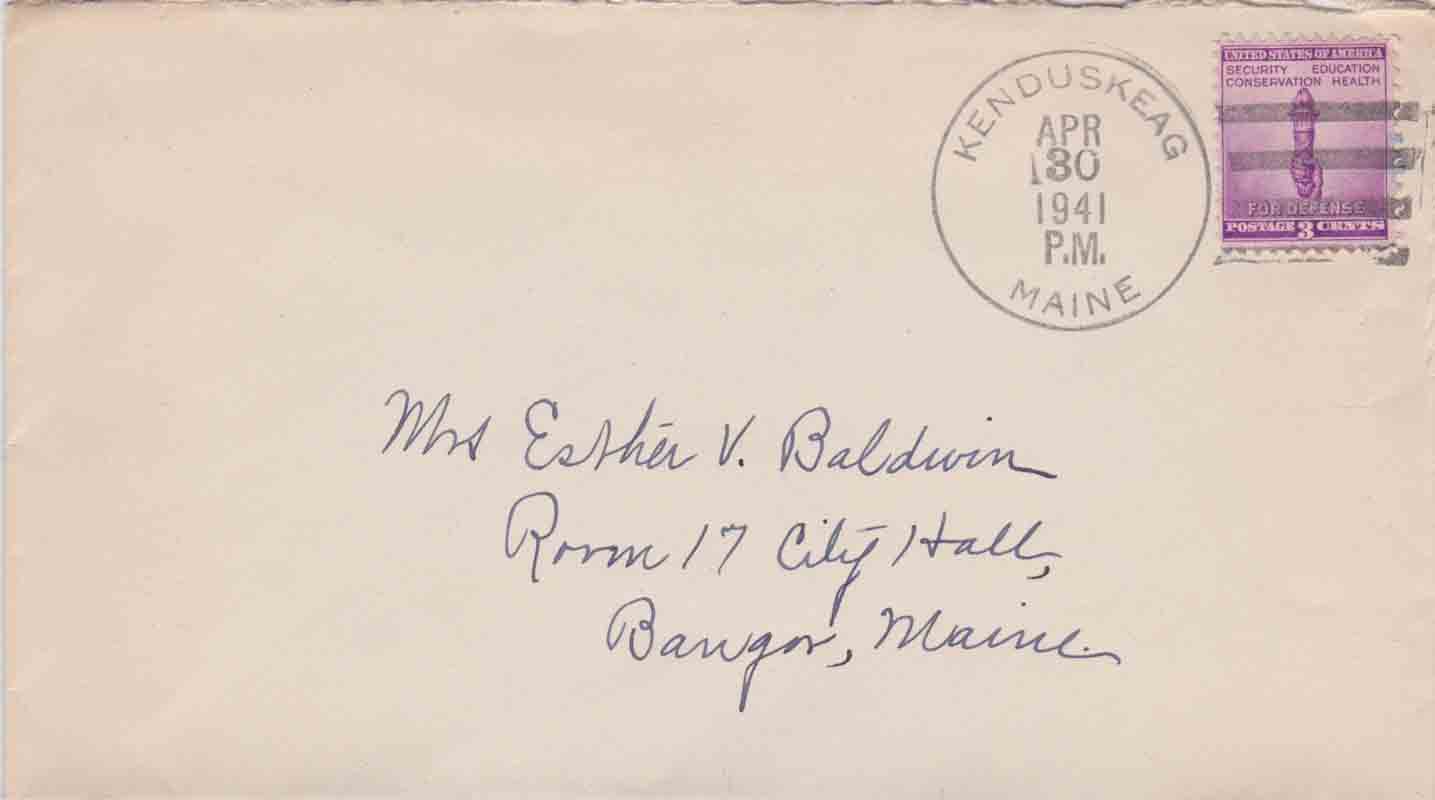 KENDUSKEAG
APR
30
1941
P.M.
MAINE
UNITED STATES OF AMERICA
SECURITY EDUCATION
CONSERVATION HEALTH
FOR DEFENSE
POSTAGE 3 CENTS
Mrs Esther V. Baldwin
Room 17 City Hall,
Bangor, Maine.